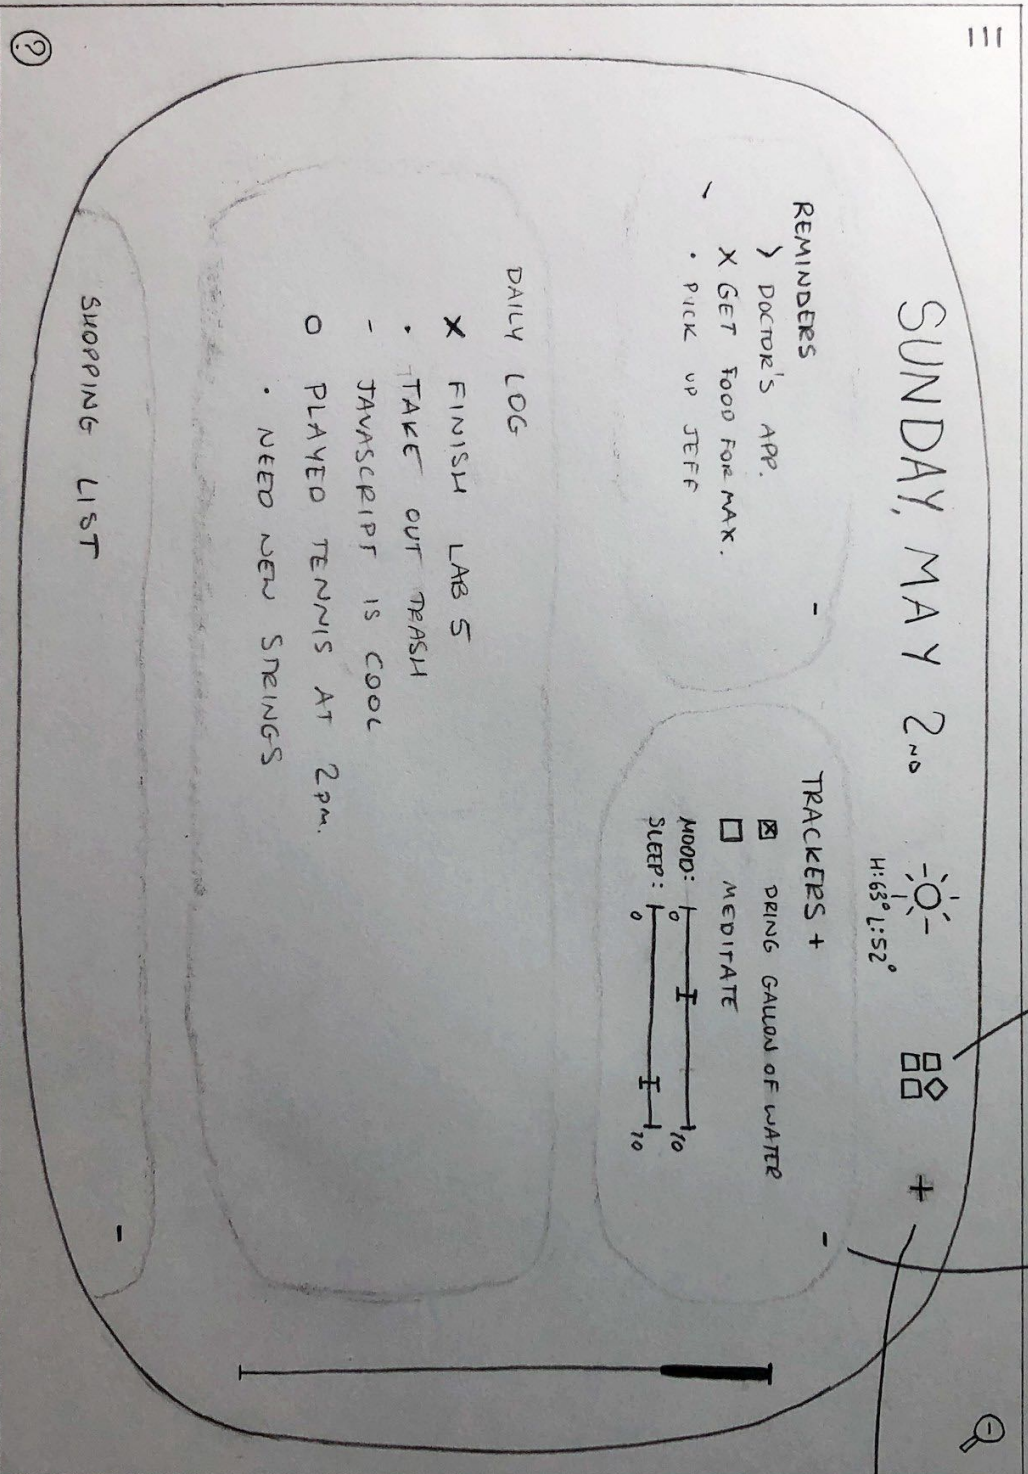 ?
SUNDAY, MAY 2ND
H:63° L:52°
+
REMINDERS
-
> DOCTOR'S APP.
X GET FOOD FOR MAX.
• PICK UP JEFF
TRACKERS +
-
☒ DRING GALLON OF WATER
☐ MEDITATE
MOOD: 0 10
SLEEP: 0 10
DAILY LOG
X FINISH LAB 5
• TAKE OUT TRASH
- JAVASCRIPT IS COOL
O PLAYED TENNIS AT 2PM.
• NEED NEW STRINGS
SHOPPING LIST
-